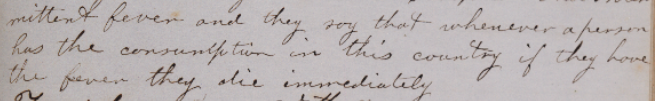 mittent fever and they say that whenever a person
has the consumption in this country if they have
the fever they die immediately